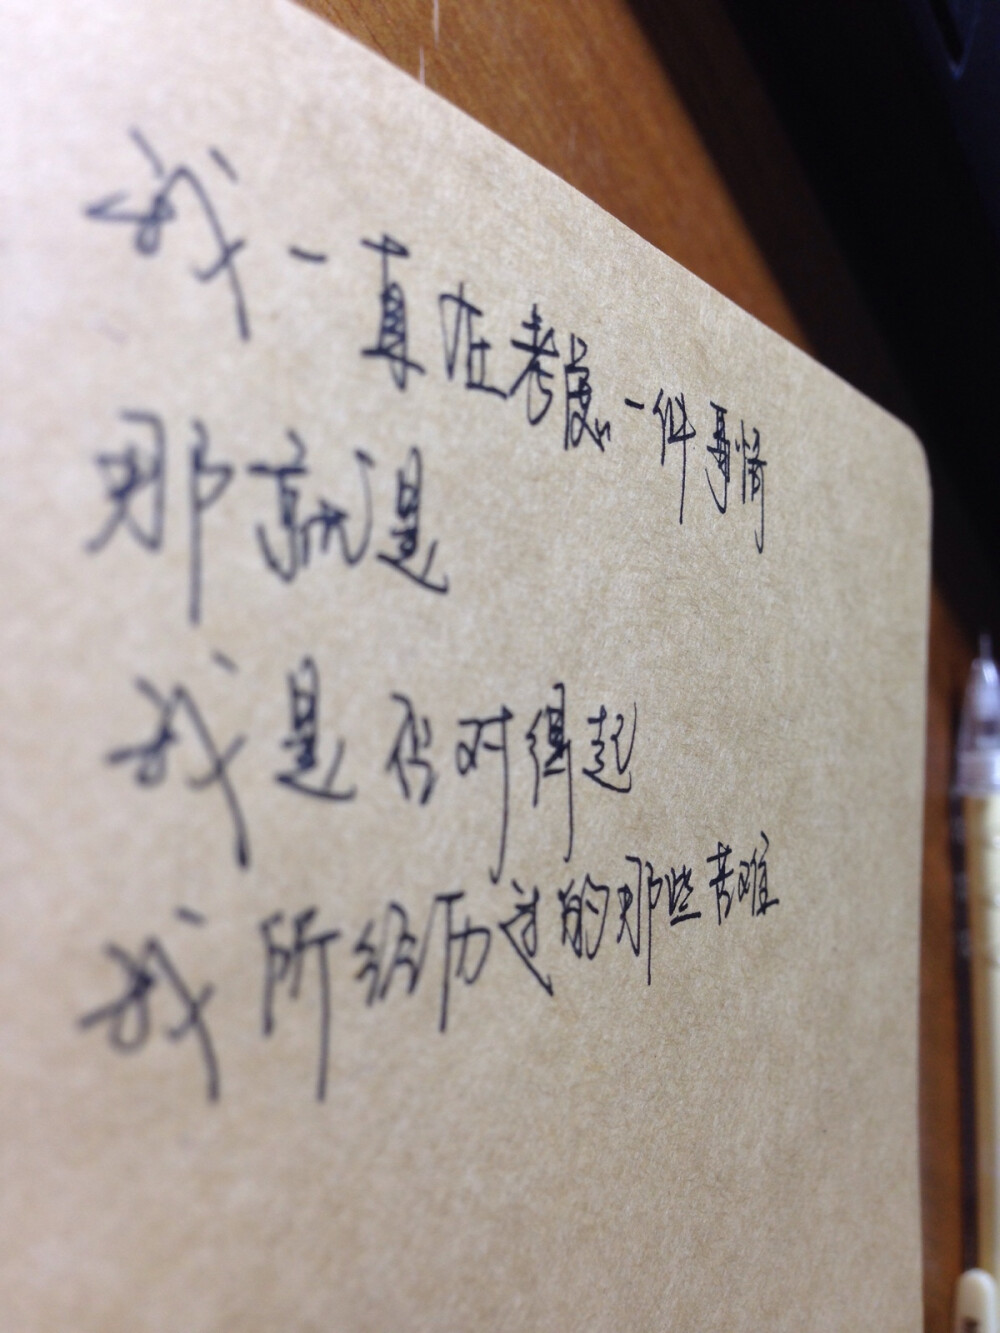 我一直在考虑一件事情
那就是
我是否对得起
我所经历过的那些苦难